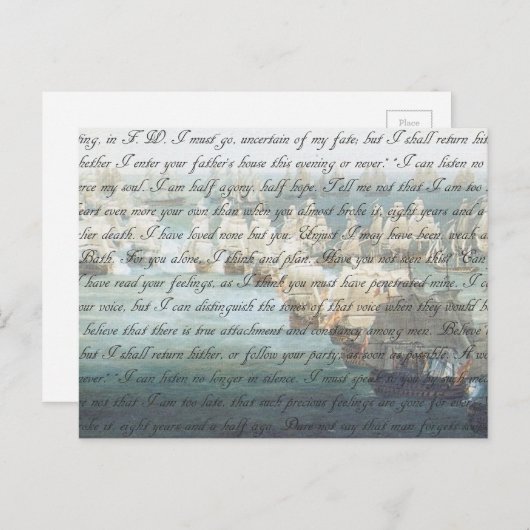 Place
ting, in F. W. I must go, uncertain of my fate; but I shall return hit
hether I enter your father's house this evening or never." "I can listen no
erce my soul. I am half agony, half hope. Tell me not that I am too
eart even more your own than when you almost broke it, eight years and a
lier death. I have loved none but you. Unjust I may have been, weak a
Bath. For you alone, I think and plan. Have you not seen this? Can
have read your feelings, as I think you must have penetrated mine. I can
our voice, but I can distinguish the tones of that voice when they would b
believe that there is true attachment and constancy among men. Believe
but I shall return hither, or follow your party, as soon as possible. A w
never." "I can listen no longer in silence. I must speak to you by such mea
me not that I am too late, that such precious feelings are gone for ever.
oke it, eight years and a half ago. Dare not say that man forgets